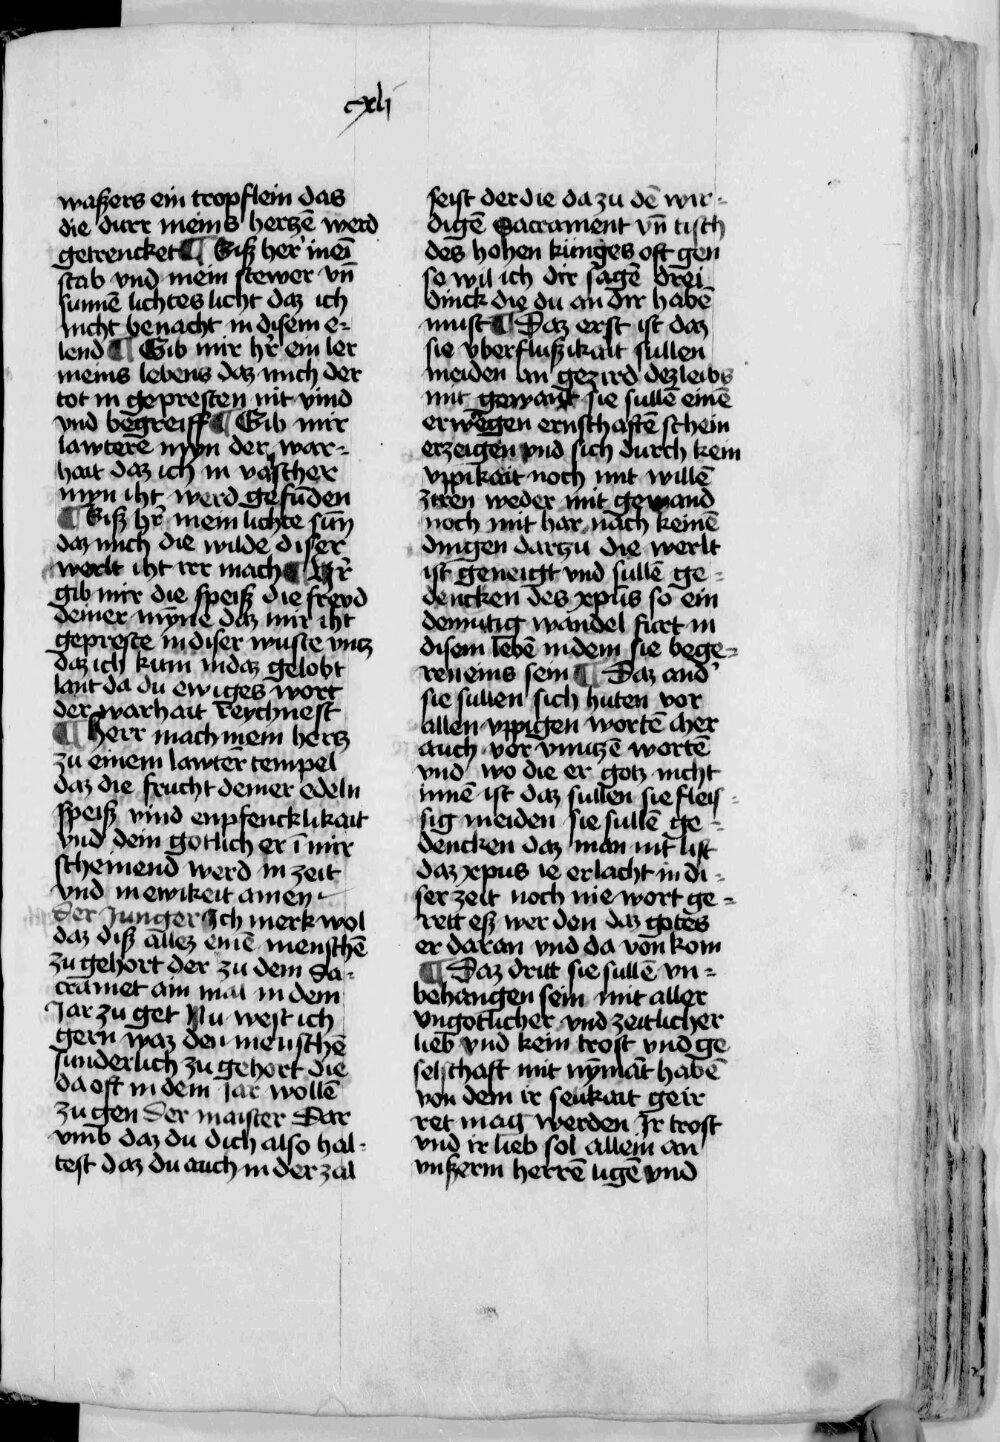 cxli
waßers ein tropflein das
die durr meins hertzē werd
getrencket ¶ Biß her' mei
stab vnd mein stewer vn̄
sunnē lichtes licht daz ich
nicht benacht in disem e=
lend ¶ Gib mir hr̄ ein ler
meins lebens daz mich der
tot in gepresten nit vind
vnd begreiff ¶ Gib mir
lawterē myn der war=
hait daz ich in valscher
myn iht werd gefunden
¶ Biß hr̄ mein lichte sun̄
daz mich die wilde diser
werlt iht irr mach ¶ Hr̄
gib mir die speiß die frevd
deiner myn̄e daz mir iht
gepreste in diser wuste vntz
daz ich kum in daz gelobt
lant da du ewiges wort
der warhait reychnest
¶ Herr mach mein hertz
zu einem lawter tempel
daz die frucht deiner edeln
speiß vind enpfencklikait
vnd dein gotlich er ī mir
scheinend werd in zeit
vnd in ewikeit amen
Der Junger Ich merk wol
daz diß allez einē menschē
zu gehort der zu dem Sa=
cramēt ain mal in dem
Jar zu get Nu west ich
gern waz den menschē
sunderlich zu gehort die
da oft in dem Jar wollē
zu gen Der maister Dar
vmb daz du dich also hal=
test daz du auch in der zal
seist der die da zu dē wir=
digē Sacrament vn̄ tisch
des hohen kunges oft gen
so wil ich dir sagē drei
dinck die du an dir habē
must ¶ Daz erst ist daz
sie vberflußikait sullen
meiden an gezird dez leibs
mit gewant sie sullē einē
erwegen ernschaftē schein
erzeigen vnd sich durch kein
vppikait noch mit willē
ziren weder mit gewand
noch mit har nach keinē
dingen dar zu die werlt
ist geneigt vnd sullē ge=
dencken des xp̄us so ein
demutig wandel furt in
disem lebē in dem sie bege=
ren eins sein ¶ Daz and'
sie sullen sich huten vor
allen vppigen wortē aber
auch vor vnnutzē wortē
vnd wo die er gotz nicht
innē ist daz sullen sie fleis=
sig meiden sie sullē ge=
dencken daz man nit list
daz xpus ie erlacht in di=
ser zeit noch nie wort ge=
rett eß wer den daz gotes
er daran vnd da von kom
¶ Daz dritt sie sullē vn=
behangen sein mit aller
vngotlicher vnd zeitlicher
lieb vnd kein trost vnd ge
selschaft mit nymāt habē
von dem ir selikait geir
ret mag werden Ir trost
vnd ir lieb sol allein an
vnßerm herrē ligē vnd